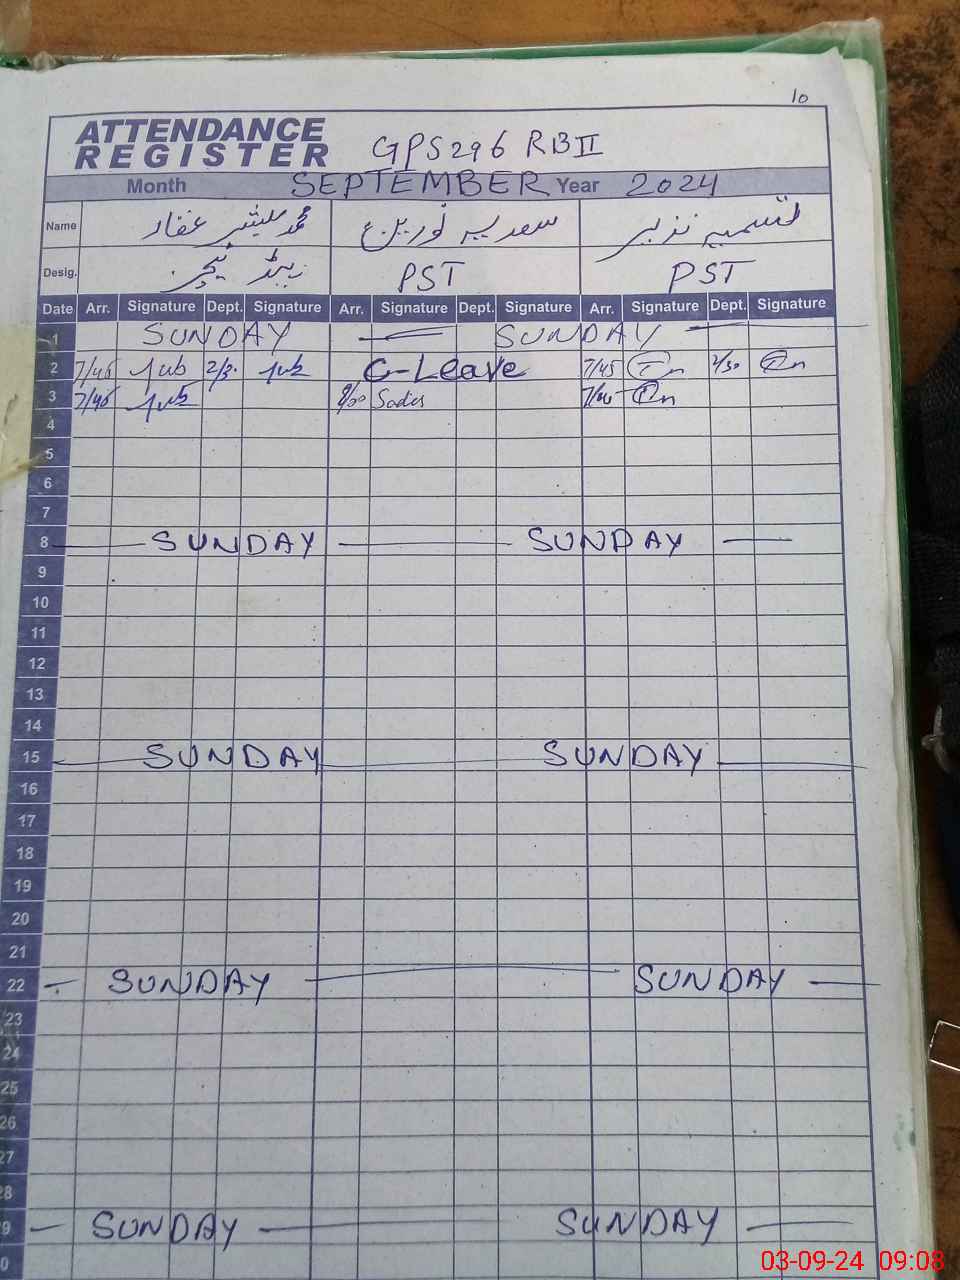 10
ATTENDANCE
REGISTER GPS 296 RB II
Month SEPTEMBER Year 2024
Name محمد مبشر غفار سعدیہ نورین تسمیہ نذیر
Desig. ہیڈ ٹیچر PST PST
Date Arr. Signature Dept. Signature Arr. Signature Dept. Signature Arr. Signature Dept. Signature
1 SUNDAY SUNDAY
2 7/45 2/30 C-Leave 7/45 2/30
3 7/45 8/00 Sadia 7/45
4
5
6
7
8 SUNDAY SUNDAY
9
10
11
12
13
14
15 SUNDAY SUNDAY
16
17
18
19
20
21
22 SUNDAY SUNDAY
23
24
25
26
27
28
29 SUNDAY SUNDAY
03-09-24 09:08